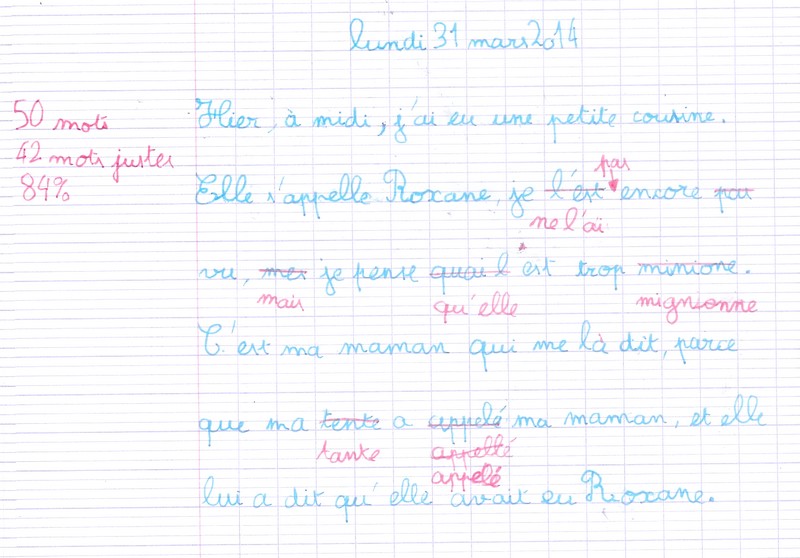 lundi 31 mars 2014
50 mots
42 mots justes
84%
Hier, à midi, j'ai eu une petite cousine.
pas
Elle s'appelle Roxane, je l'est encore pas
ne l'ai
vu, mes je pense quai l'est trop minione.
mais qu'elle mignonne
C'est ma maman qui me là dit, parce
que ma tente a appelé ma maman, et elle
tante appellé
appelé
lui a dit qu'elle avait eu Roxane.